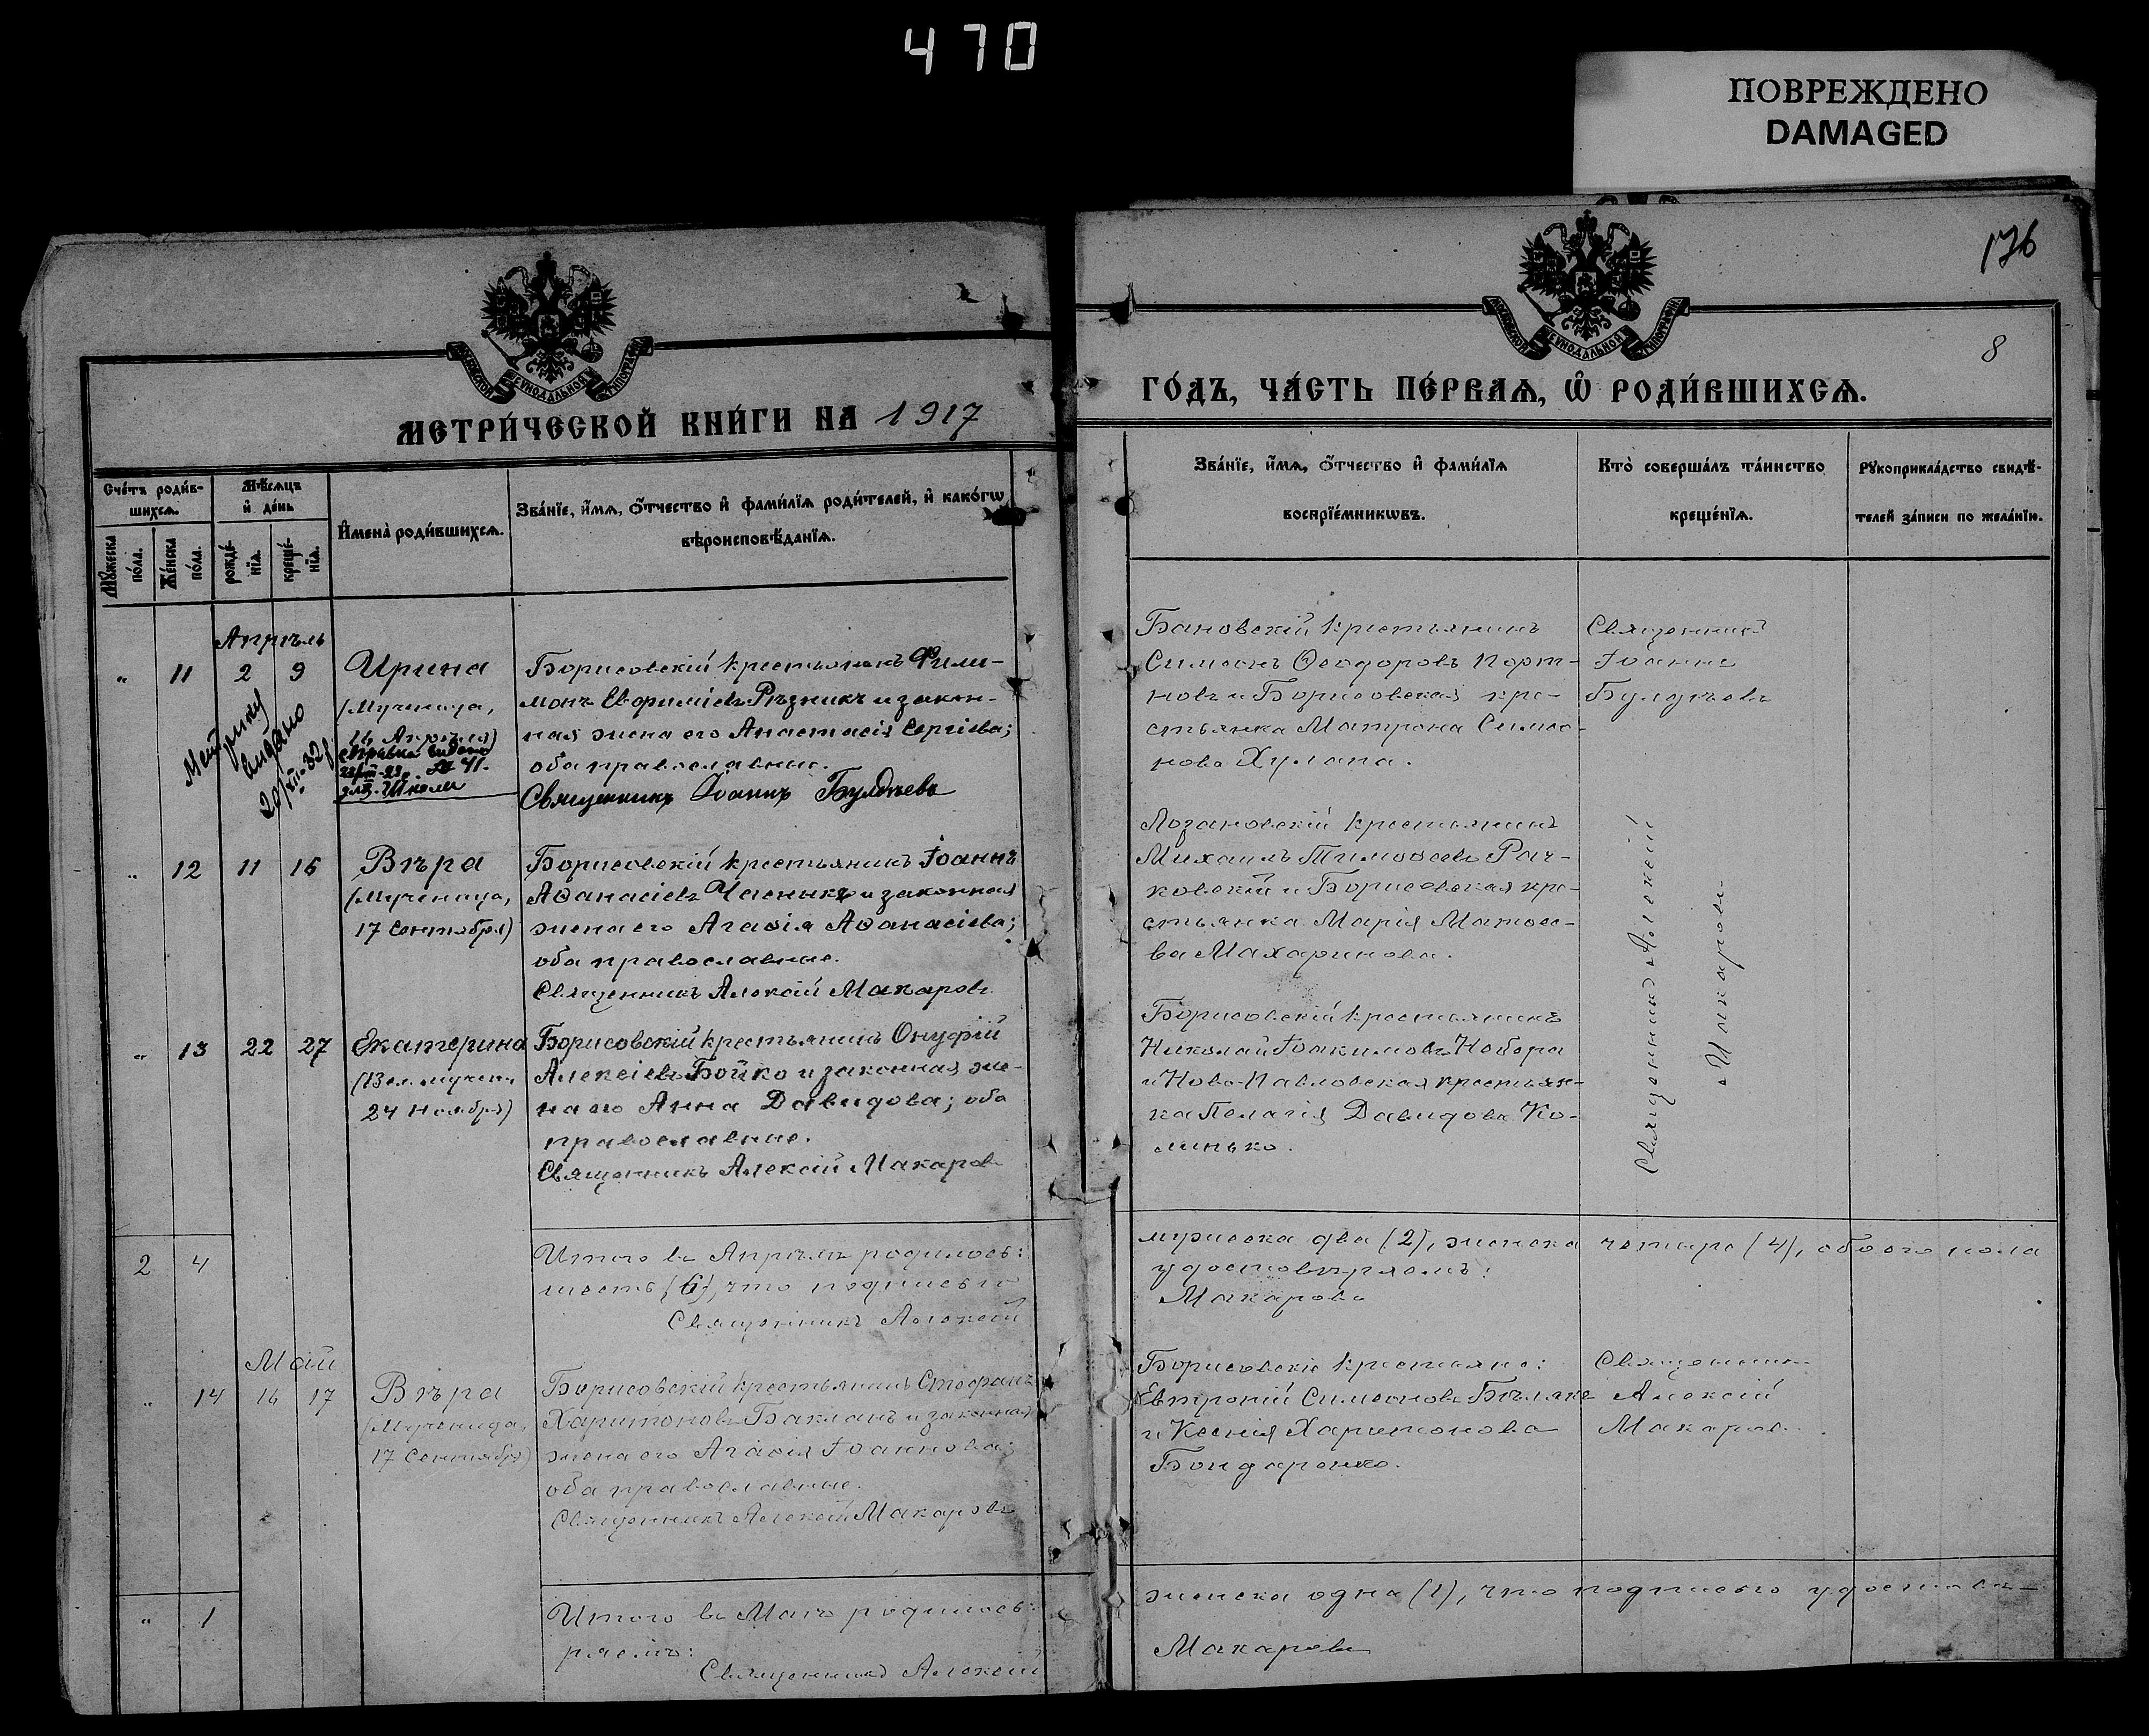 470
ПОВРЕЖДЕНО
DAMAGED
176
8
МЕТРИ́ЧЕСКОЙ КНИ́ГИ НА 1917
ГО́ДЪ, ЧА́СТЬ ПЕ́РВАѦ, Ѽ РОДИ́ВШИХСѦ.
Сче́тъ роди́в-
шихсѧ.
Мѣ́сѧцъ
и҆ де́нь
Мꙋ́жеска
по́ла.
Же́нска
по́ла.
рожде́-
нїѧ.
креще́-
нїѧ.
И҆мена̀ роди́вшихсѧ.
Зва́нїе, и҆́мѧ, ѻ҆́тчество и҆ фами́лїѧ роди́телей, и҆ како́гѡ
вѣроисповѣ́данїѧ.
Зва́нїе, и҆́мѧ, ѻ҆́тчество и҆ фами́лїѧ
воспрїе́мникѡвъ.
Кто̀ соверша́лъ та́инство
креще́нїѧ.
Рꙋкоприкла́дство свидѣ́-
телей за́писи по жела́нїю.
Апрѣль
" 11 2 9 Ирина
(Мученица,
16 Апрѣля)
справка видана
Метрику
видано
20/XII-32 р.
Борисовскій крестьянинъ Фили-
монъ Евфиміевъ Рѣзникъ и закон-
ная жена его Анастасія Сергіева;
оба православные.
Священникъ Іоаннъ Булдчевъ
Бановскій крестьянинъ
Симеонъ Ѳеодоровъ Порт-
новъ и Борисовская кре-
стьянка Матрона Симео-
нова Хулапа.
Священникъ
Іоаннъ
Булдчевъ
" 12 11 16 Вѣра
(Мученица,
17 Сентября)
Борисовскій крестьянинъ Іоаннъ
Аѳанасіевъ Часныкъ и законная
жена его Агаѳія Аѳанасіева;
оба православные.
Священникъ Алексій Макаровъ
Лозановскій крестьянинъ
Михаилъ Тимоѳеевъ Рач-
ковскій и Борисовская кре-
стьянка Марія Матѳее-
ва Махаринова.
Священникъ Алексій
Макаровъ
" 13 22 27 Екатерина
(Вел. мучен.,
24 Ноября)
Борисовскій крестьянинъ Онуфрій
Алексіевъ Бойко и законная же-
на его Анна Давидова; оба
православные.
Священникъ Алексій Макаровъ
Борисовскій крестьянинъ
Николай Іоакимовъ
и Ново-Павловская крестьян-
ка Пелагія Давидова Ко-
линько.
2 4
Итого въ Апрѣлѣ родилось:
мужеска два (2), женска четыре (4), обоего пола
шесть (6), что подписью
удостовѣряемъ:
Священникъ Алексій
Макаровъ
Май
" 14 16 17 Вѣра
(Мученица,
17 Сентября)
Борисовскій крестьянинъ Стефанъ
Харитоновъ Бакланъ и законная
жена его Агаѳія Іоаннова;
оба православные.
Священникъ Алексій Макаровъ
Борисовскіе крестьяне:
Евтропій Симеоновъ Бѣляке
и Ксенія Харитонова
Бондаренко.
Священникъ
Алексій
Макаровъ.
" 1
Итого въ Маѣ родилось:
женска одна (1), что подписью удостовѣ-
ряемъ:
Священникъ Алексій
Макаровъ